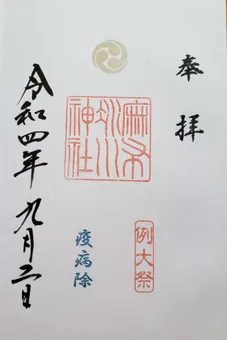 奉拝
麻布
氷川
神社
例大祭
疫病除
令和四年九月二日